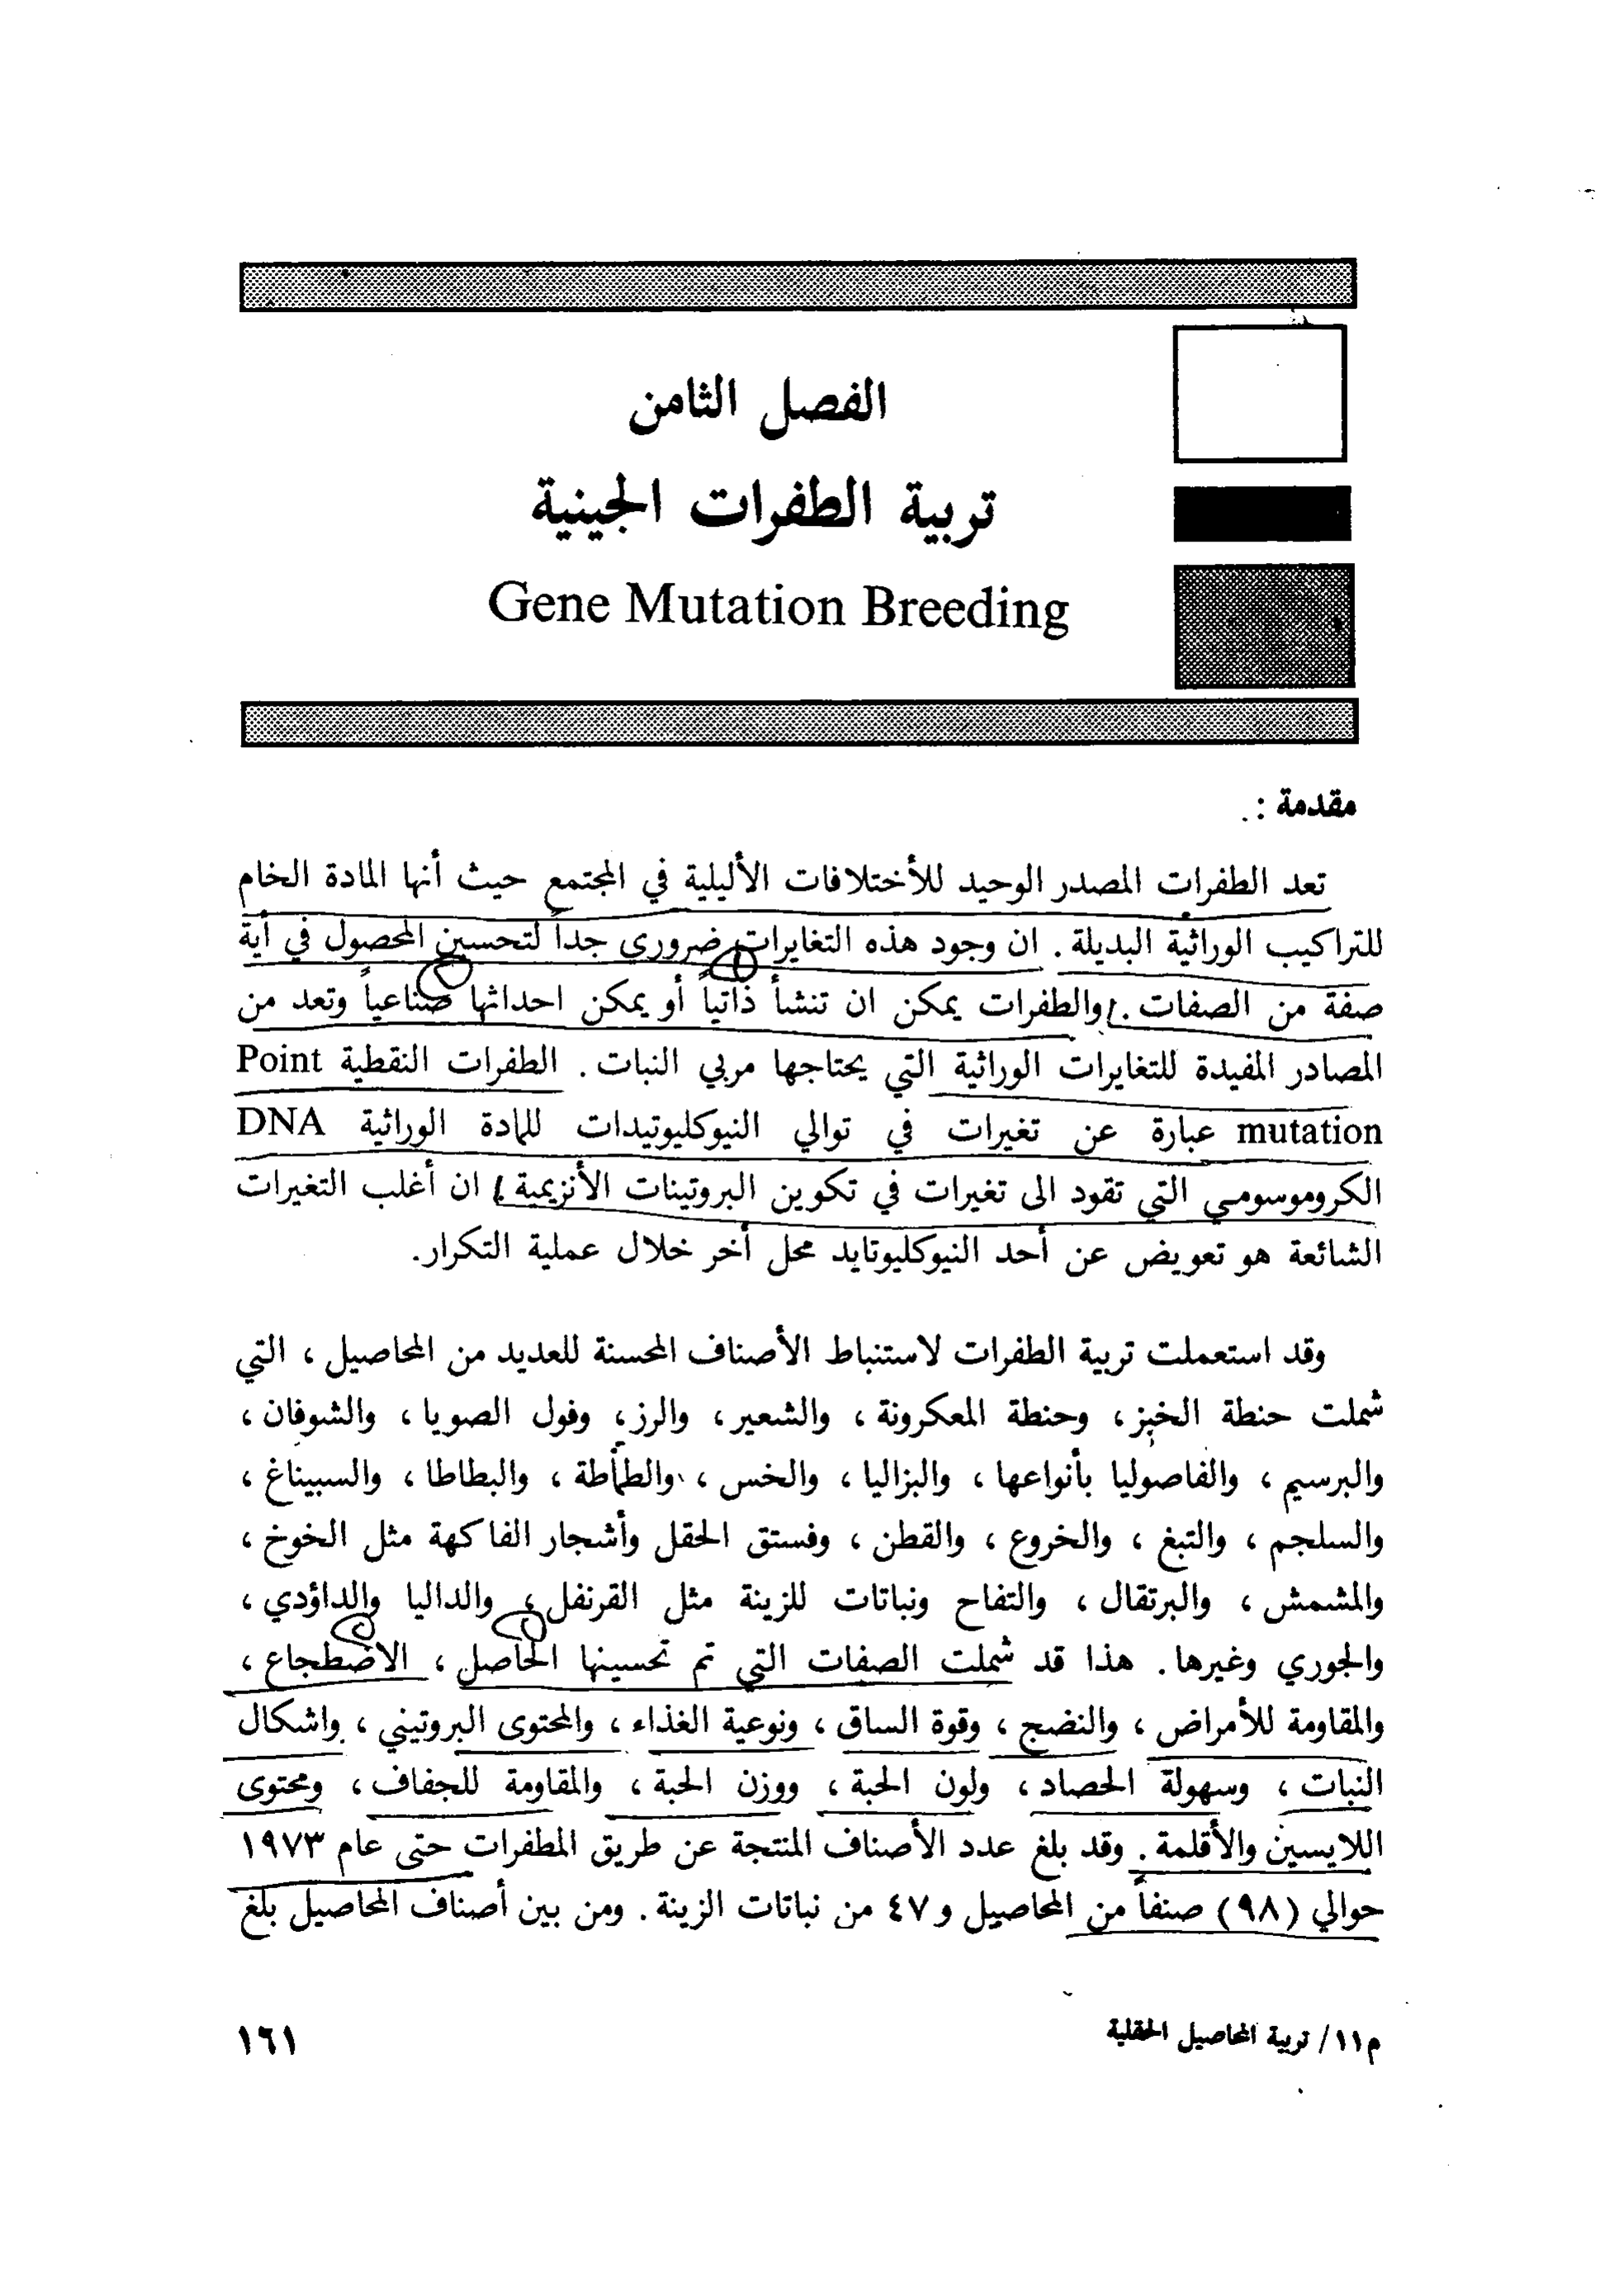 الفصل الثامن
تربية الطفرات الجينية
Gene Mutation Breeding
مقدمة :
تعد الطفرات المصدر الوحيد للأختلافات الأليلية في المجتمع حيث أنها المادة الخام
للتراكيب الوراثية البديلة . ان وجود هذه التغايرات ضروري جداً لتحسين المحصول في أية
صفة من الصفات . والطفرات يمكن ان تنشأ ذاتياً أو يمكن احداثها صناعياً وتعد من
المصادر المفيدة للتغايرات الوراثية التي يحتاجها مربي النبات . الطفرات النقطية Point
mutation عبارة عن تغيرات في توالي النيوكليوتيدات للمادة الوراثية DNA
الكروموسومي التي تقود الى تغيرات في تكوين البروتينات الأنزيمية . ان أغلب التغيرات
الشائعة هو تعويض عن أحد النيوكليوتايد محل أخر خلال عملية التكرار.
وقد استعملت تربية الطفرات لاستنباط الأصناف المحسنة للعديد من المحاصيل ، التي
شملت حنطة الخبز ، وحنطة المعكرونة ، والشعير ، والرز ، وفول الصويا ، والشوفان ،
والبرسيم ، والفاصوليا بأنواعها ، والبزاليا ، والخس ، والطماطة ، والبطاطا ، والسبيناغ ،
والسلجم ، والتبغ ، والخروع ، والقطن ، وفستق الحقل وأشجار الفاكهة مثل الخوخ ،
والمشمش ، والبرتقال ، والتفاح ونباتات للزينة مثل القرنفل ، والداليا والداؤدي ،
والجوري وغيرها . هذا قد شملت الصفات التي تم تحسينها الحاصل ، الاضطجاع ،
والمقاومة للأمراض ، والنضج ، وقوة الساق ، ونوعية الغذاء ، والمحتوى البروتيني ، واشكال
النبات ، وسهولة الحصاد ، ولون الحبة ، ووزن الحبة ، والمقاومة للجفاف ، ومحتوى
اللايسين والأقلمة . وقد بلغ عدد الأصناف المنتجة عن طريق المطفرات حتى عام ١٩٧٣
حوالي (٩٨) صنفاً من المحاصيل و ٤٧ من نباتات الزينة . ومن بين أصناف المحاصيل بلغ
م١١/ تربية المحاصيل الحقلية
١٦١